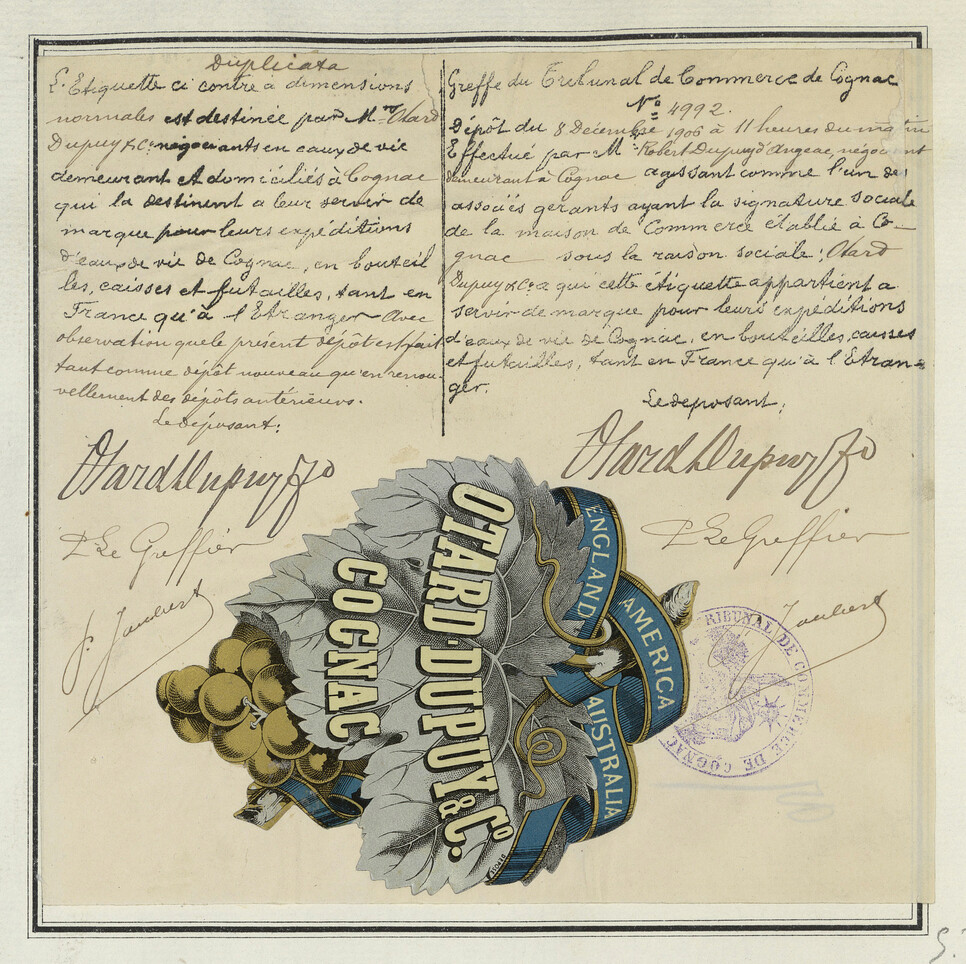 Duplicata
L'Etiquette ci contre à dimensions
normales est destinée par Mrs Otard
Dupuy & Co négociants en eaux de vie
demeurant et domiciliés à Cognac
qui la destinent a leur servir de
marque pour leurs expéditions
d'eaux de vie de Cognac, en bouteil
les, caisses et futailles, tant en
France qu'à l'Etranger Avec
observation que le présent dépôt est fait
tant comme dépôt nouveau qu'en renou-
vellement des dépôts antérieurs.
Le déposant:
Otard Dupuy & Co
P Le Greffier
J. Jaubert
Greffe du Tribunal de Commerce de Cognac
No 4992.
Dépôt du 8 Décembre 1906 à 11 heures du matin
Effectué par M. Robert Dupuy d'Angeac, négociant
demeurant à Cognac agissant comme l'un des
associés gerants ayant la signature sociale
de la maison de Commerce établie à Co-
gnac sous la raison sociale: Otard
Dupuy & Co a qui cette étiquette appartient a
servir de marque pour leurs expéditions
d'eaux de vie de Cognac, en bouteilles, caisses
et futailles, tant en France qu'à l'Etran-
ger.
Le déposant:
Otard Dupuy & Co
P Le Greffier
Jaubert
OTARD-DUPUY & Co.
COGNAC
ENGLAND
AMERICA
AUSTRALIA
TRIBUNAL DE COMMERCE DE COGNAC